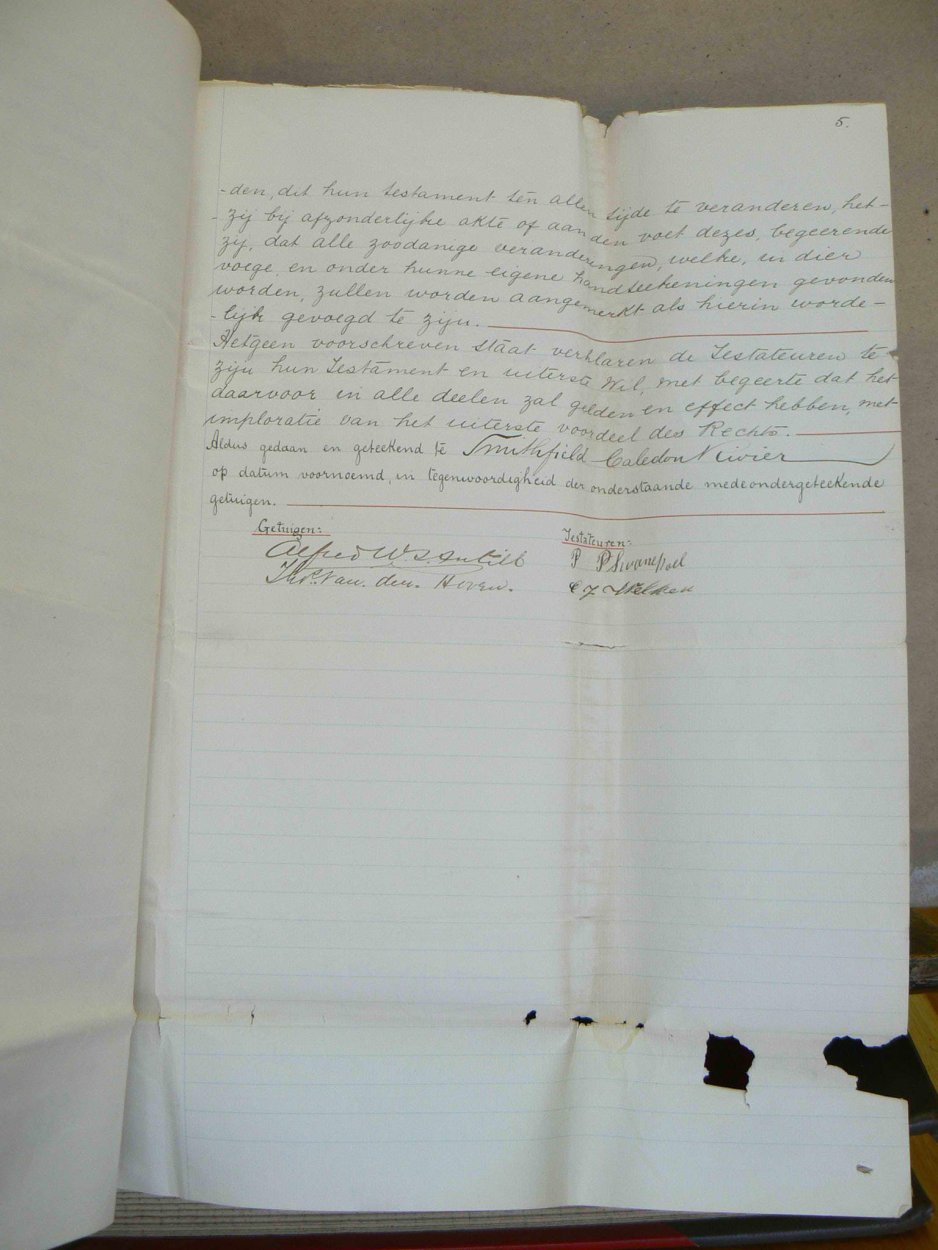 5.
-den, dit hun testament ten allen tijde te veranderen, het-
-zij bij afzonderlijke akte of aan den voet dezes, begeerende
zij, dat alle zoodanige veranderingen, welke, in dier
voege, en onder hunne eigene handteekeningen gevonden
worden, zullen worden aangemerkt als hierin woorde-
-lijk gevoegd te zijn.
Hetgeen voorschreven staat verklaren de Testateuren te
zijn hun Testament en uiterste Wil, met begeerte dat het
daarvoor in alle deelen zal gelden en effect hebben, met
imploratie van het uiterste voordeel des Rechts.
Aldus gedaan en geteekend te Smithfield Caledon Rivier
op datum voornoemd, in tegenwoordigheid der onderstaande medeondergeteekende
getuigen.
Getuigen: Testateuren:
Alfred W. S. P Swanepoel
Van den Hoven. C J